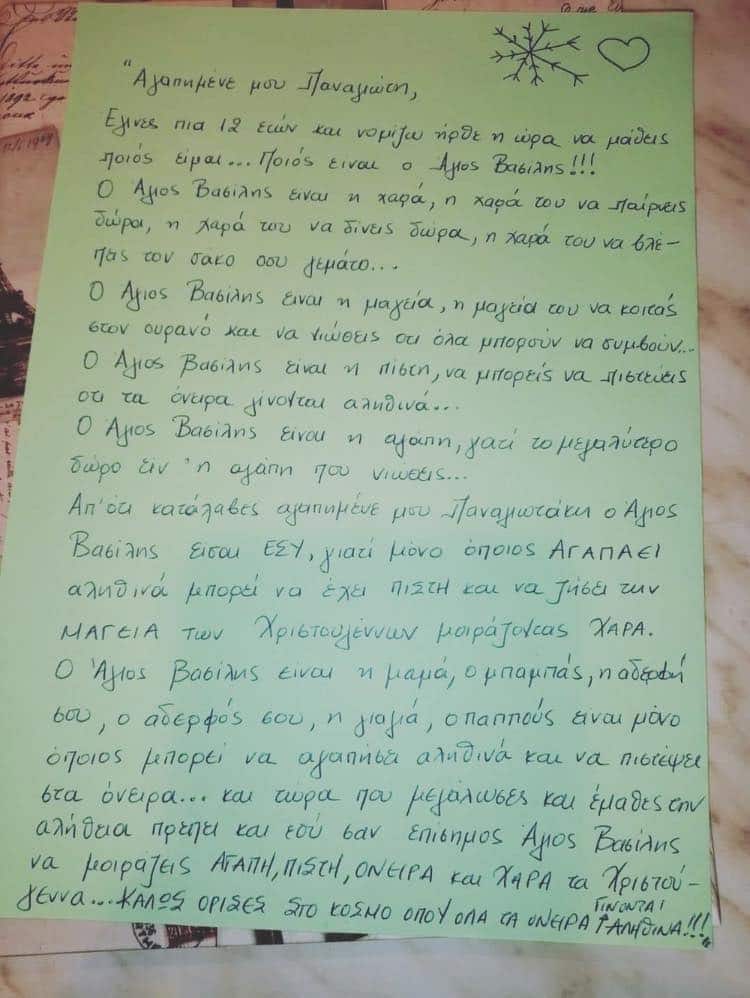 "Αγαπημένε μου Παναγιώτη,
Έγινες πια 12 ετών και νομίζω ήρθε η ώρα να μάθεις
ποιός είμαι... Ποιός είναι ο Άγιος Βασίλης!!!
Ο Άγιος Βασίλης είναι η χαρά, η χαρά του να παίρνεις
δώρα, η χαρά του να δίνεις δώρα, η χαρά του να βλέ-
πεις τον σάκο σου γεμάτο...
Ο Άγιος Βασίλης είναι η μαγεία, η μαγεία του να κοιτάς
στον ουρανό και να νιώθεις οτι όλα μπορούν να συμβούν...
Ο Άγιος Βασίλης είναι η πίστη, να μπορείς να πιστεύεις
οτι τα όνειρα γίνονται αληθινά...
Ο Άγιος Βασίλης είναι η αγάπη, γιατί το μεγαλύτερο
δώρο είν' η αγάπη που νιώθεις...
Απ'ότι κατάλαβες αγαπημένε μου Παναγιωτάκη ο Άγιος
Βασίλης είσαι ΕΣΥ, γιατί μόνο όποιος ΑΓΑΠΑΕΙ
αληθινά μπορεί να έχει ΠΙΣΤΗ και να ζήσει την
ΜΑΓΕΙΑ των Χριστουγέννων μοιράζοντας ΧΑΡΑ.
Ο Άγιος Βασίλης είναι η μαμά, ο μπαμπάς, η αδερφή
σου, ο αδερφός σου, η γιαγιά, ο παππούς είναι μόνο
όποιος μπορεί να αγαπήσει αληθινά και να πιστέψει
στα όνειρα... και τώρα που μεγάλωσες και έμαθες την
αλήθεια πρέπει και εσύ σαν επίσημος Άγιος Βασίλης
να μοιράζεις ΑΓΑΠΗ, ΠΙΣΤΗ, ΟΝΕΙΡΑ και ΧΑΡΑ τα Χριστού-
γεννα... ΚΑΛΩΣ ΟΡΙΣΕΣ ΣΤΟ ΚΟΣΜΟ ΟΠΟΥ ΟΛΑ ΤΑ ΟΝΕΙΡΑ ΓΙΝΟΝΤΑΙ ΑΛΗΘΙΝΑ!!!"